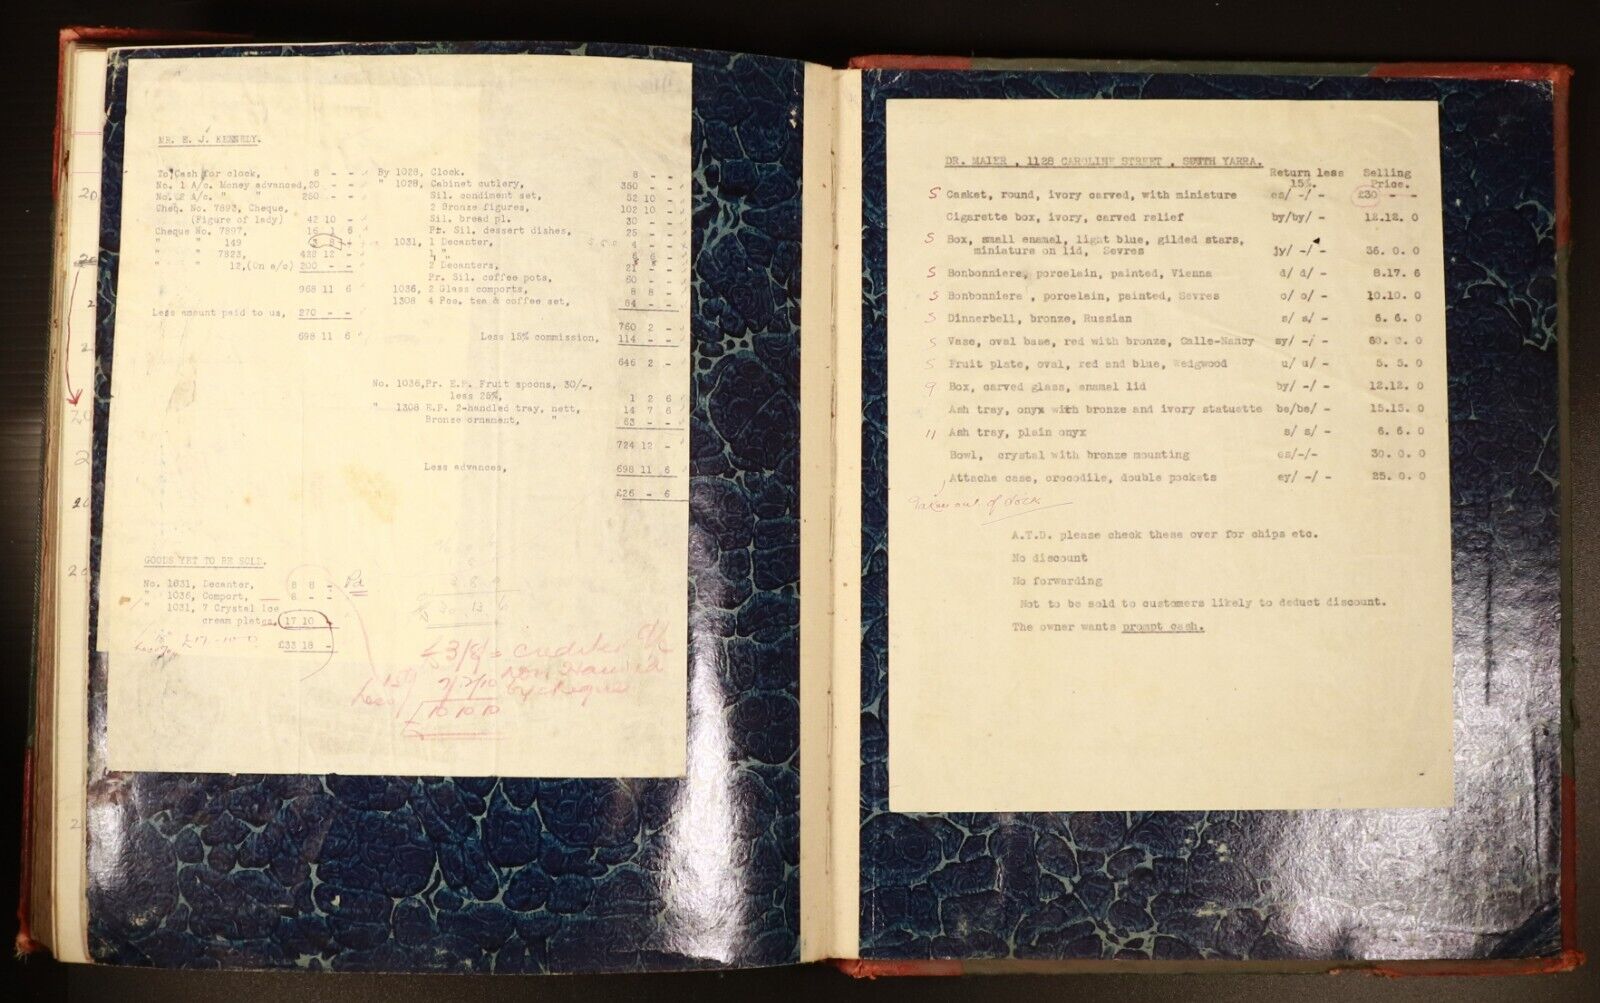 MR. E. J. KENNEDY.
To Cash for clock, 8 - -
No. 1 A/c. Money advanced, 20 - -
No. 2 A/c. " " 250 - -
Cheq. No. 7893, Cheque,
(Figure of lady) 42 10 -
Cheque No. 7897, 16 1 6
" " 149 3 8 -
" " 7823, 428 12 -
" " 12, (On a/c) 200 - -
968 11 6
Less amount paid to us, 270 - -
698 11 6
By 1028, Clock. 8 - -
" 1028, Cabinet cutlery, 350 - -
Sil. condiment set, 52 10 -
2 Bronze figures, 102 10 -
Sil. bread pl. 30 - -
Pr. Sil. dessert dishes, 25 - -
1031, 1 Decanter, 4 - -
1 " 6 6 -
2 Decanters, 21 - -
Pr. Sil. coffee pots, 60 - -
1036, 2 Glass comports, 8 8 -
1308 4 Pce. tea & coffee set, 84 - -
760 2 -
Less 15% commission, 114 - -
646 2 -
No. 1036, Pr. E.P. Fruit spoons, 30/-,
less 25%, 1 2 6
" 1308 E.P. 2-handled tray, nett, 14 7 6
Bronze ornament, " 63 - -
724 12 -
Less advances, 698 11 6
£26 - 6
GOODS YET TO BE SOLD.
No. 1031, Decanter, 8 8 - Pd
" 1036, Comport, 8 - -
" 1031, 7 Crystal Ice
cream plates. 17 10 -
£33 18 -
£3/8/= credited
by cheque
Less
10 10 10
DR. MAIER , 1128 CAROLINE STREET , SOUTH YARRA.
Return less 15%. Selling Price.
S Casket, round, ivory carved, with miniature es/ -/ - £30 - -
Cigarette box, ivory, carved relief by/by/ - 12.12. 0
S Box, small enamel, light blue, gilded stars,
miniature on lid, Sevres jy/ -/ - 36. 0. 0
S Bonbonniere, porcelain, painted, Vienna d/ d/ - 8.17. 6
S Bonbonniere , porcelain, painted, Sevres o/ o/ - 10.10. 0
S Dinnerbell, bronze, Russian s/ s/ - 6. 6. 0
S Vase, oval base, red with bronze, Galle-Nancy sy/ -/ - 60. 0. 0
S Fruit plate, oval, red and blue, Wedgwood u/ u/ - 5. 5. 0
9 Box, carved glass, enamel lid by/ -/ - 12.12. 0
Ash tray, onyx with bronze and ivory statuette be/be/ - 15.15. 0
11 Ash tray, plain onyx s/ s/ - 6. 6. 0
Bowl, crystal with bronze mounting es/-/- 30. 0. 0
Attache case, crocodile, double pockets ey/ -/ - 25. 0. 0
Taken out of stock
A.T.D. please check these over for chips etc.
No discount
No forwarding
Not to be sold to customers likely to deduct discount.
The owner wants prompt cash.